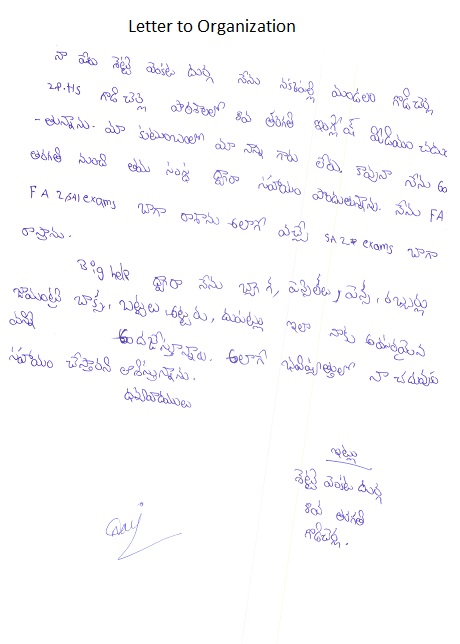 Letter to Organization
నా పేరు శెట్టి వెంకట దుర్గ నేను నక్కపల్లి మండలం గొడిచర్ల
Z.P.HS గొడిచెర్ల పాఠశాలలో 8వ తరగతి ఇంగ్లీష్ మీడియం చదువు
-తున్నాను. మా కుటుంబంలో మా నాన్న గారు లేరు. కావున నేను 6వ
తరగతి నుండి ఈ సంస్థ ద్వారా సహాయం పొందుతున్నాను. నేను FA
FA 2, SA1 exams బాగా రాశాను అలాగే వచ్చే SA 2 exams బాగా
రాస్తాను.
Big help ద్వారా నేను బ్యాగ్, పెన్సిల్లు, పెన్స్, రబ్బర్లు
జామెంట్రి బాక్స్, బట్టలు, దుప్పట్లు ఇలా నాకు అవసరమైన
అందజేస్తున్నారు. అలాగే భవిష్యత్తులో నా చదువుకు
సహాయం చేస్తారని ఆశిస్తున్నాను.
ధన్యవాదములు
ఇట్లు
శెట్టి వెంకట దుర్గ
8వ తరగతి
గొడిచెర్ల.